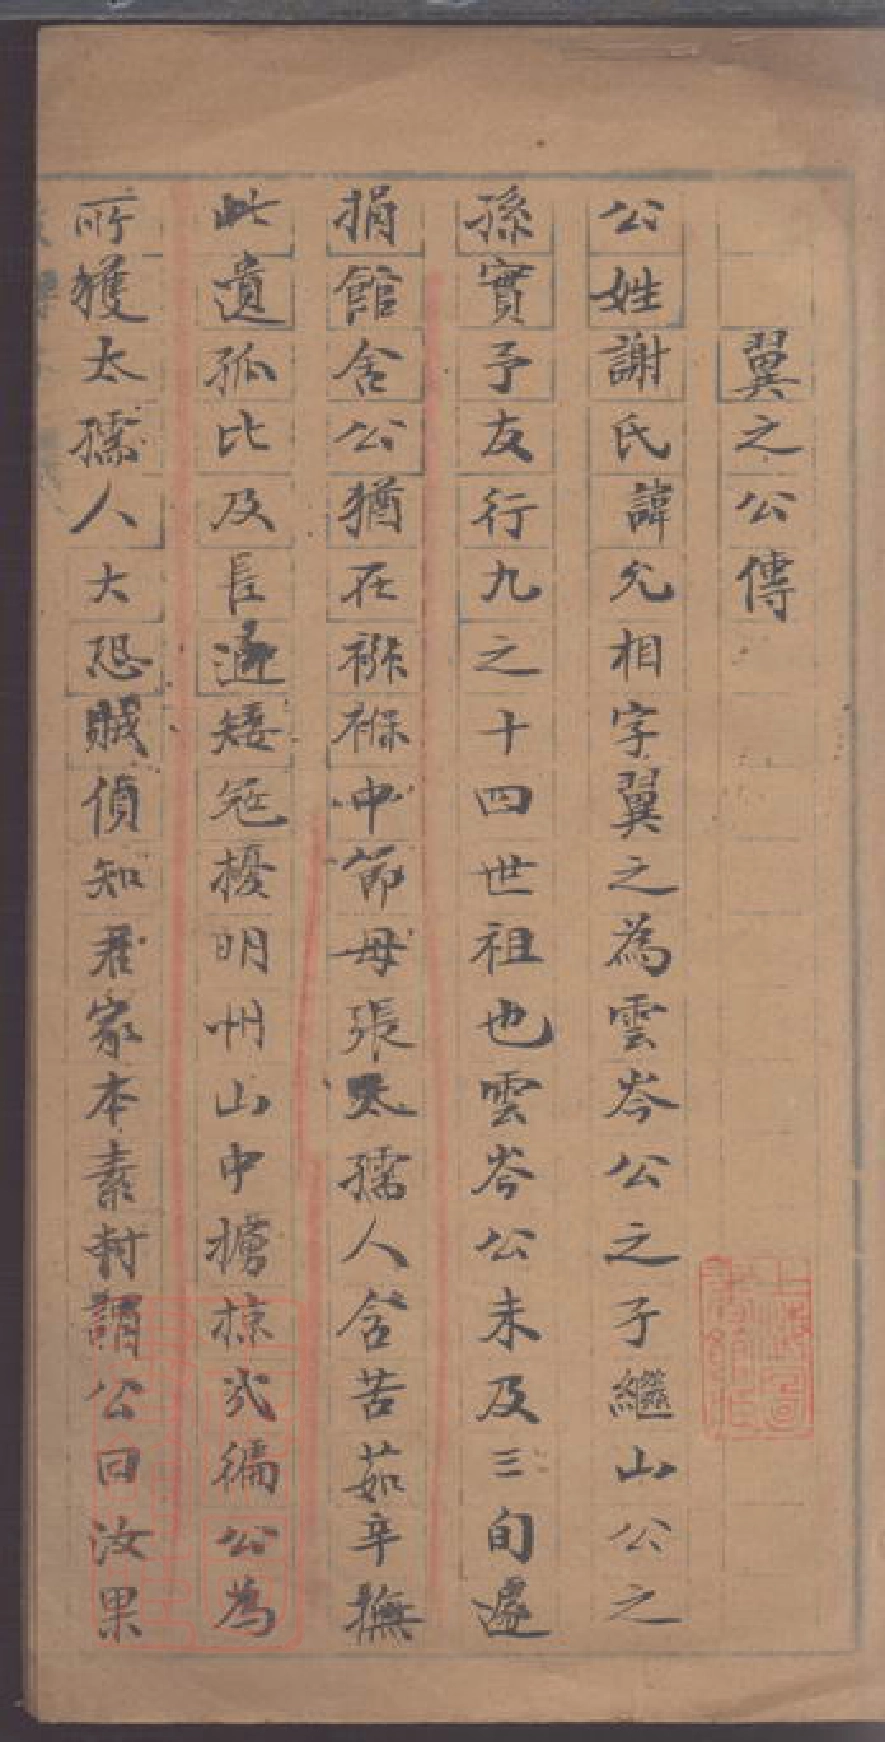 翼之公傳
公姓謝氏諱允相字翼之為雲岑公之子繼山公之
孫實予友行九之十四世祖也雲岑公未及三旬遽
捐館舍公猶在襁褓中節母張太孺人含苦茹辛撫
此遺孤比及長適矮冦擾明州山中擄掠幾徧公為
所獲太孺人大恐賊偵知君家本素封謂公曰汝果
上海圖書館藏